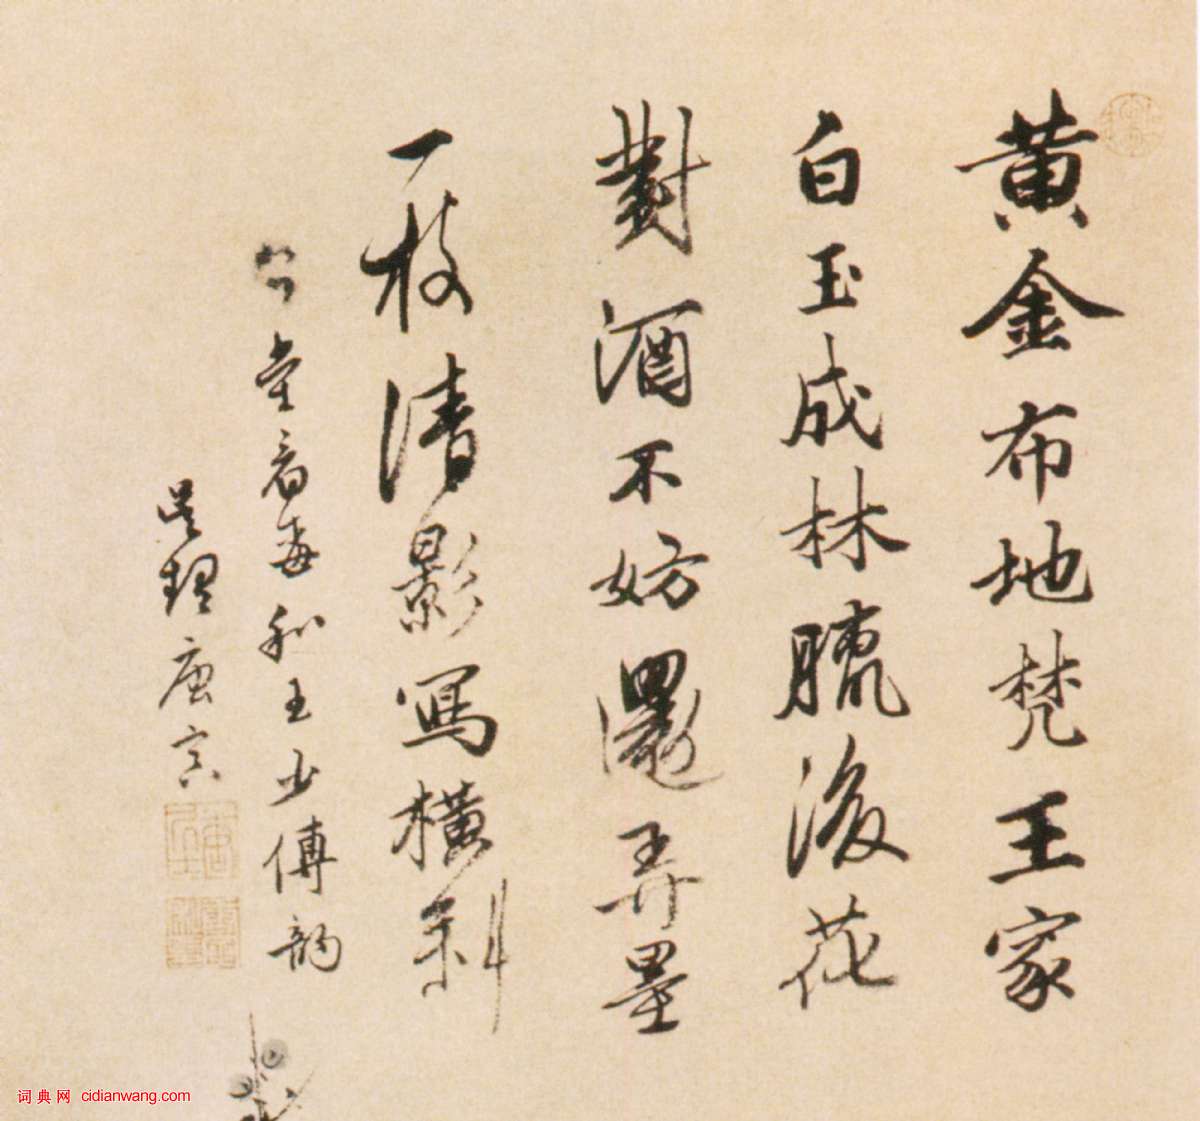 黄金布地梵王家
白玉成林臘後花
對酒不妨還弄墨
一枝清影寫橫斜
堂看梅和王少傅韵
吳趨唐寅
词典网 cidianwang.com